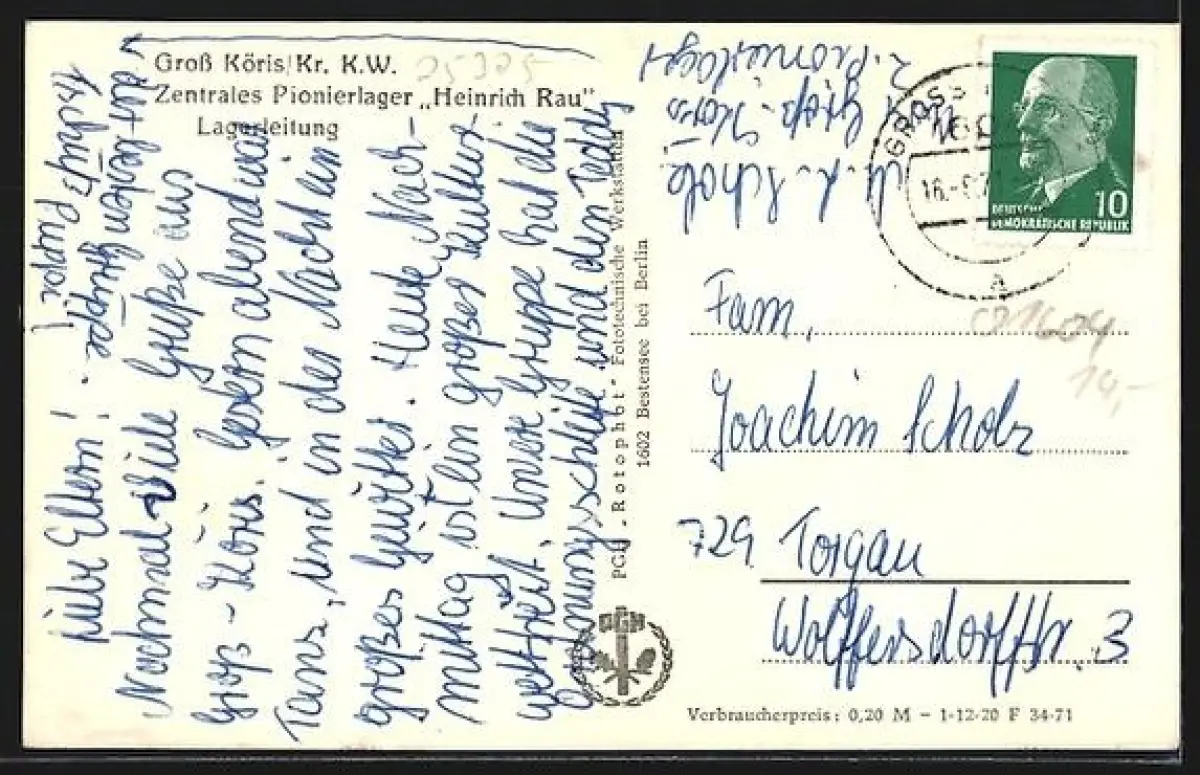 Groß Köris/Kr. K.W.
Zentrales Pionierlager „Heinrich Rau"
Lagerleitung
25325
Liebe Eltern!
Nochmal viele Grüße aus
Groß-Köris. Gestern abend war
Tanz, und in der Nacht ein
großes Gewitter. Heute Nach-
mittag ist ein großer Kultur-
wettstreit. Unsere Gruppe hat die
Ordnungsschleife und den Teddy
PGH „Rotophot" Fototechnische Werkstätten
1602 Bestensee bei Berlin
M. K. Scholz
Groß-Köris
Z. Pionierlager
GROSS
16.
A
DEUTSCHE
DEMOKRATISCHE REPUBLIK
10
Fam.
Joachim Scholz
729 Torgau
Wolffersdorffstr. 3
14,-
PGH
Verbraucherpreis: 0,20 M – 1-12-20 F 34-71